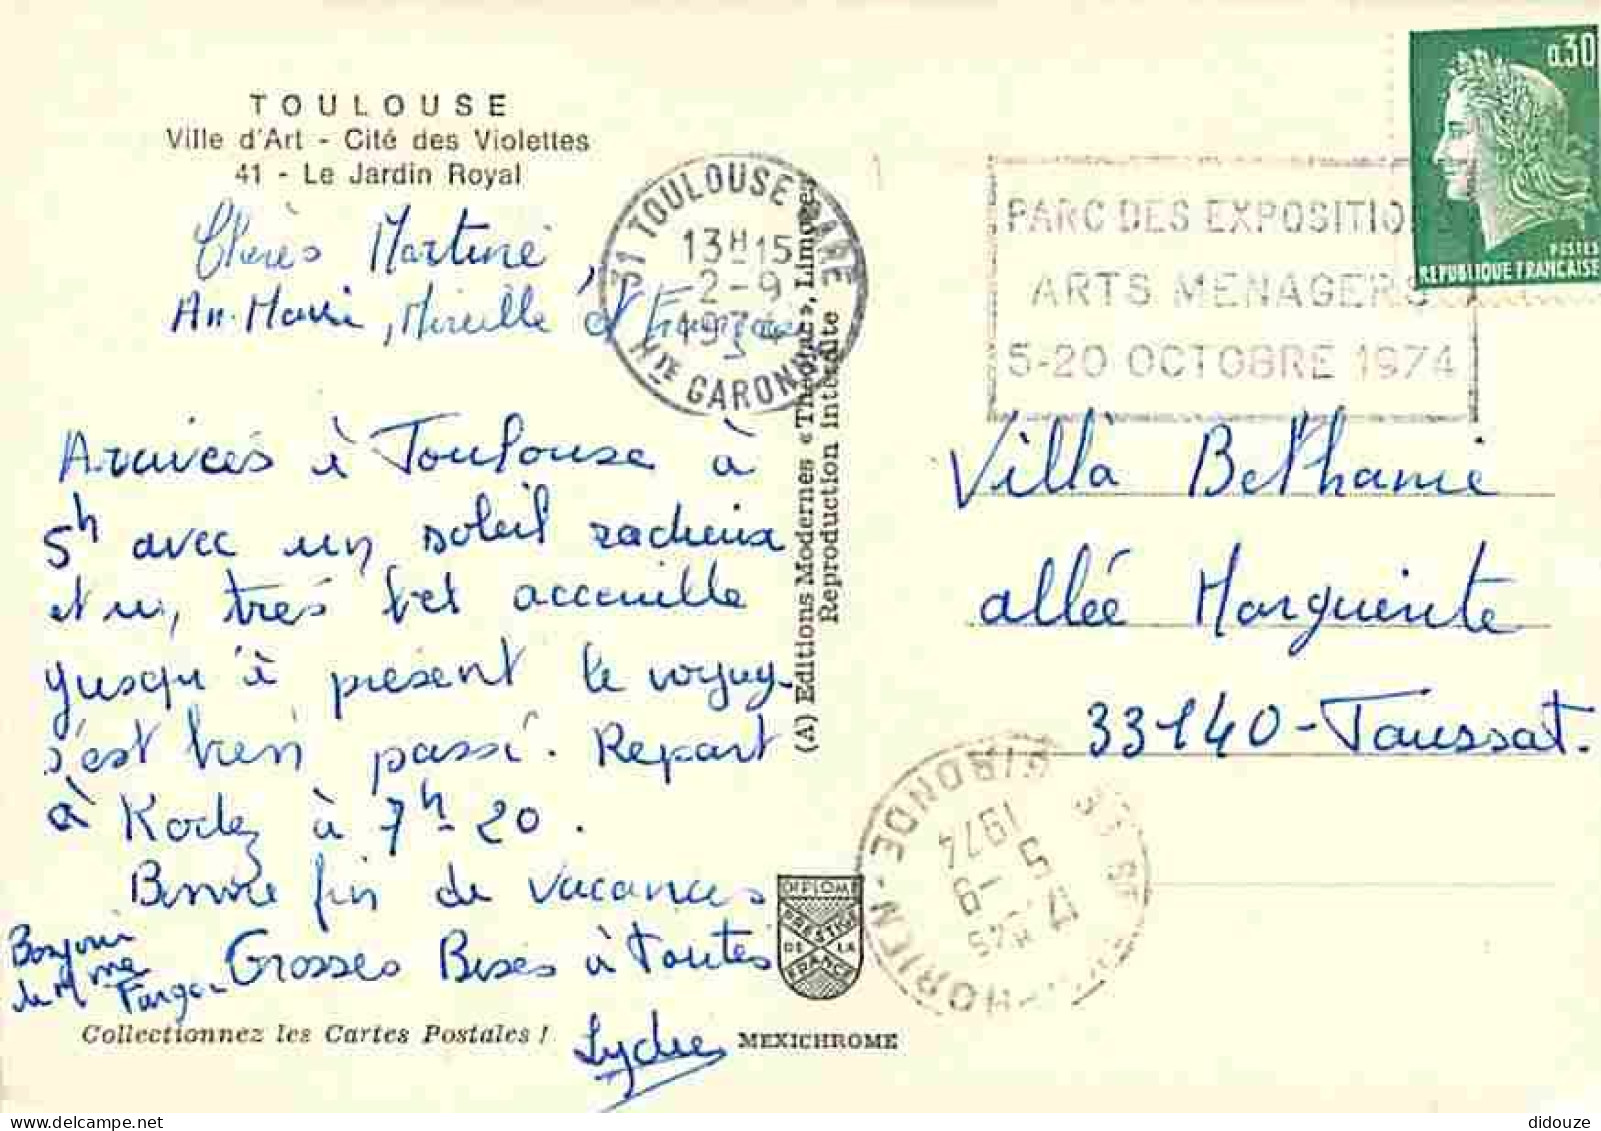 TOULOUSE
Ville d'Art - Cité des Violettes
41 - Le Jardin Royal
Chères Martine,
An-Marie, Mireille et
Arrivées à Toulouse à
5h avec un soleil radieux
et un, très bel accueille
Jusqu'à présent le voyage
s'est bien passé. Repart
à Rodez à 7h-20.
Bonne fin de vacances
Grosses Bises à toutes
Lydie
Bonjour
de Mme
Collectionnez les Cartes Postales !
MEXICHROME
DIPLOME
PRESTIGE
DE LA
FRANCE
(A) Editions Modernes « Théojac », Limoges
Reproduction interdite
31 TOULOUSE GARE
13H15
2-9
1974
Hte GARONNE
PARC DES EXPOSITIONS
ARTS MENAGERS
5-20 OCTOBRE 1974
0,30
POSTES
REPUBLIQUE FRANCAISE
Villa Bethanie
allée Marguerite
33140-Taussat.
GIRONDE
1974
5-9
didouze